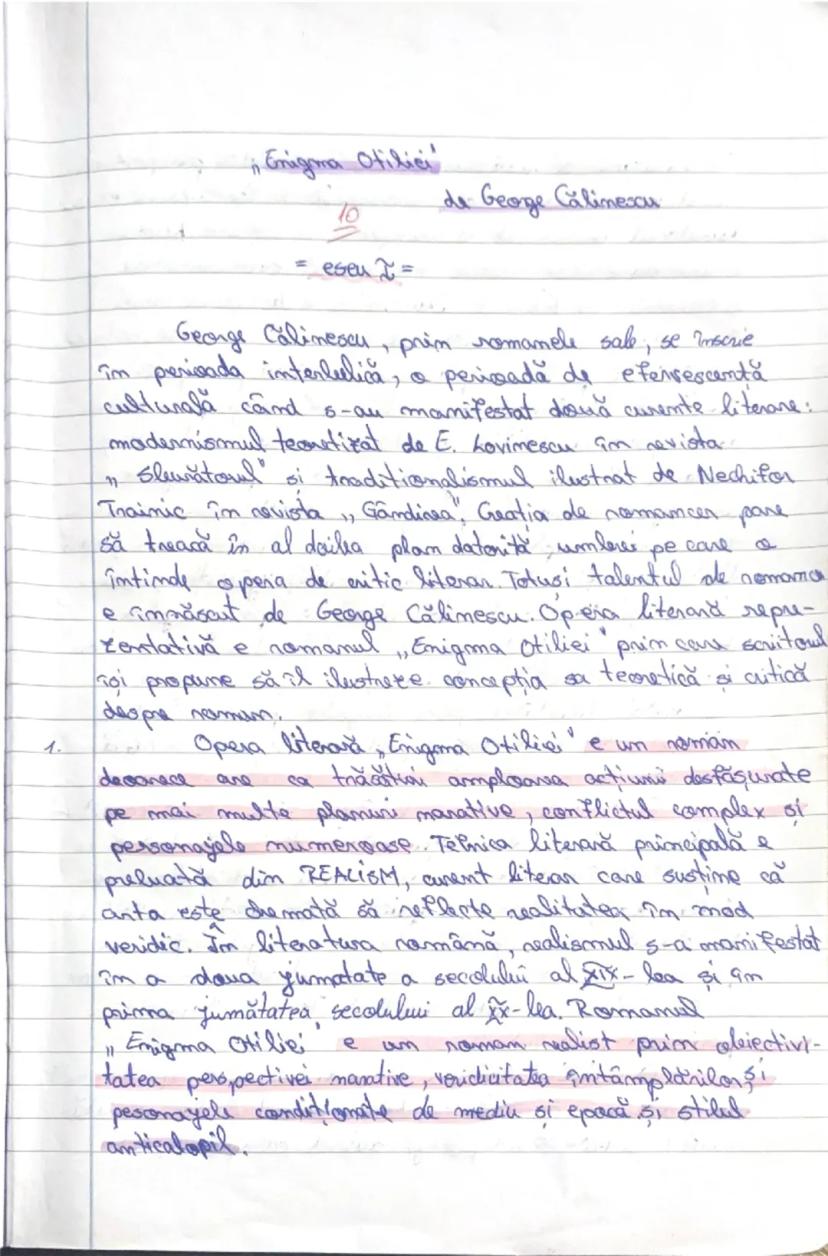 „Enigma Otiliei"
de George Călinescu
10
= eseu I =
George Călinescu, prin romanele sale, se înscrie
în perioada interbelică, o perioadă de efervescență
culturală când s-au manifestat două curente literare:
modernismul teoretizat de E. Lovinescu în revista
„Sburătorul" si traditionalismul ilustrat de Nechifor
Trainic în revista „Gândirea". Creația de romancer pare
să treacă în al doilea plan datorită umbrei pe care o
întinde opera de critic literar. Totuși talentul de romanci
e înnăscut de George Călinescu. Opera literară repre-
zentativă e romanul „Enigma Otiliei" prin care scriitorul
își propune să îl ilustreze concepția sa teoretică și critică
despre roman.
1. Opera literară „Enigma Otiliei" e un roman
deoarece are ca trăsături amploarea acțiunii desfășurate
pe mai multe planuri narative, conflictul complex și
personajele numeroase. Tehnica literară principală e
preluată din REALISM, curent literar care susține că
arta este chemată să reflecte realitatea în mod
veridic. În literatura română, realismul s-a manifestat
în a doua jumatate a secolului al XIX-lea și în
prima jumătatea secolului al XX-lea. Romanul
„Enigma Otiliei" e un roman realist prin obiectivi-
tatea perspectivei narative, veridicitatea întâmplărilor și
pesonajele condiționate de mediu și epocă și stilul
anticalopil.